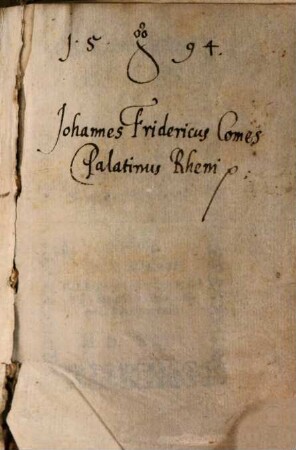 1·5· 94.
Johannes Fridericus Comes
Palatinus Rheni